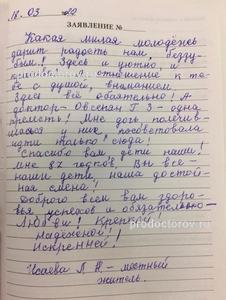 18.03
ЗАЯВЛЕНИЕ №
Какая милая молодёжь
дарит радость нам, беззу-
бым! Здесь и уютно, и
красиво. А отношение к те-
бе с душой, вниманием.
Здесь всё обаятельно! А
доктор - Овсепян Г З - одна
прелесть! Мне дочь, полечив-
шаяся у них, посоветовала
идти только сюда!
Спасибо вам дети наши!
Мне 87 годков. Вы все -
наши дети, наша достой-
ная смена!
Доброго всем вам здоро-
вья успехов и обязательно -
Любви! Крепкой!
Надёжной!
Искренней!
Исаева Л Н - местный
житель.
prodoctorov.ru